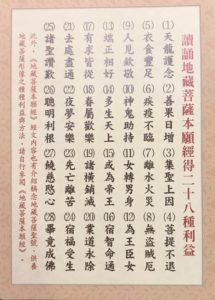 讀誦地藏菩薩本願經得二十八種利益
(1)天龍護念 (2)善果日增 (3)集聖上因 (4)菩提不退
(5)衣食豐足 (6)疾疫不臨 (7)離水火災 (8)無盜賊厄
(9)人見欽敬 (10)神鬼助持 (11)女轉男身 (12)為王臣女
(13)端正相好 (14)多生天上 (15)或為帝王 (16)宿智命通
(17)有求皆從 (18)眷屬歡樂 (19)諸橫銷滅 (20)業道永除
(21)去處盡通 (22)夜夢安樂 (23)先亡離苦 (24)宿福受生
(25)諸聖讚歎 (26)聰明利根 (27)饒慈愍心 (28)畢竟成佛
此外，《地藏菩薩本願經》經文內容也有介紹稱念地藏菩薩聖號、供養
地藏菩薩地像之種種利益與方法，請自行參閱《地藏菩薩本願經》。